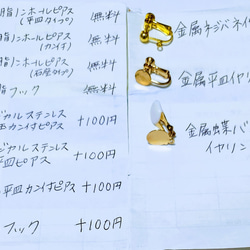 脂ノンホールピアス 無料
(平皿タイプ)
脂ノンホールピアス 無料
(カン付)
脂ノンホールピアス 無料
(石座タイプ)
脂フック 無料
ジカルステンレス
玉カン付ピアス +100円
ジカルステンレス
平皿ピアス +100円
平皿カン付ピアス +100円
フック +100円
金属ネジバネイ
金属平皿イヤリ
金属蝶バ
イヤリン